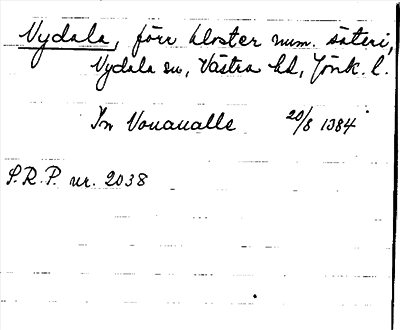 Nydala, förr kloster num. säteri,
Nydala sn, Västra hd, Jönk. l.
In Vouaualle 20/8 1384
S.R.P. nr. 2038